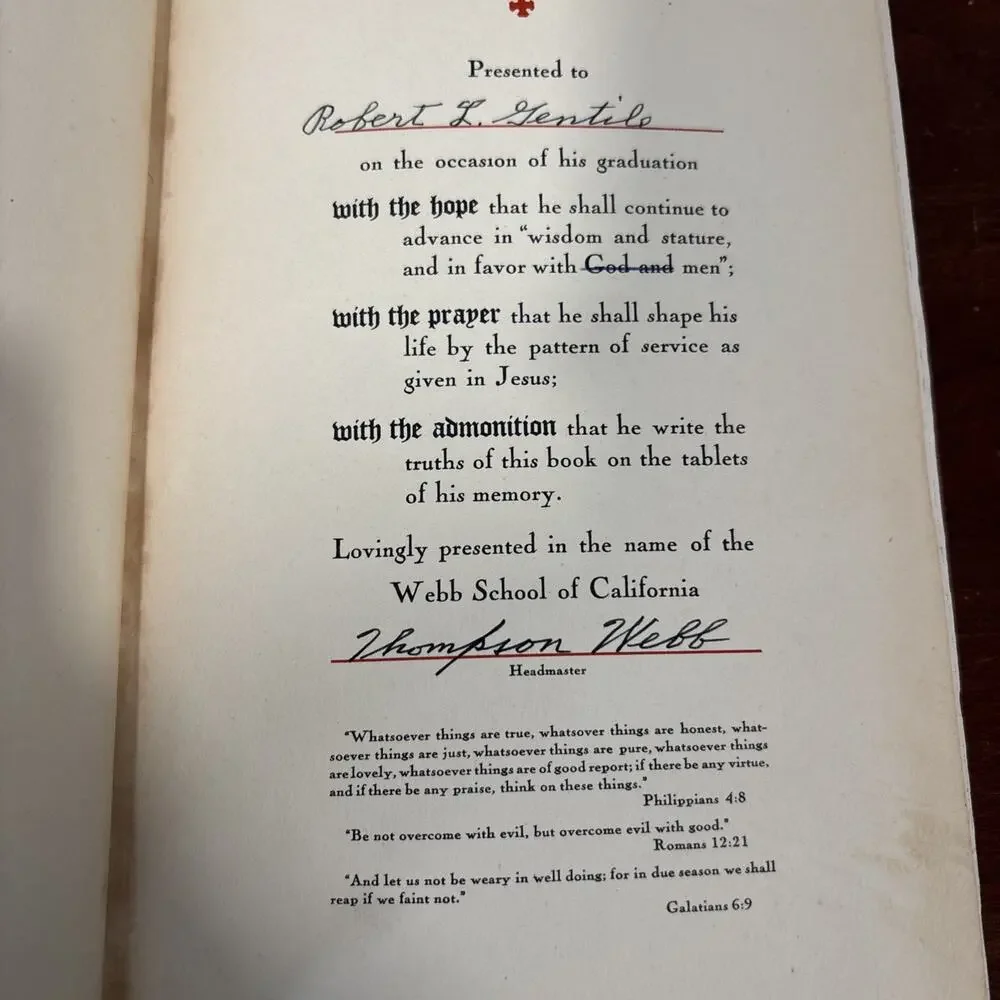 Presented to
Robert L. Gentile
on the occasion of his graduation
with the hope that he shall continue to
advance in “wisdom and stature,
and in favor with God and men”;
with the prayer that he shall shape his
life by the pattern of service as
given in Jesus;
with the admonition that he write the
truths of this book on the tablets
of his memory.
Lovingly presented in the name of the
Webb School of California
Thompson Webb
Headmaster
“Whatsoever things are true, whatsover things are honest, what-
soever things are just, whatsoever things are pure, whatsoever things
are lovely, whatsoever things are of good report; if there be any virtue,
and if there be any praise, think on these things.”
Philippians 4:8
“Be not overcome with evil, but overcome evil with good.”
Romans 12:21
“And let us not be weary in well doing; for in due season we shall
reap if we faint not.”
Galatians 6:9